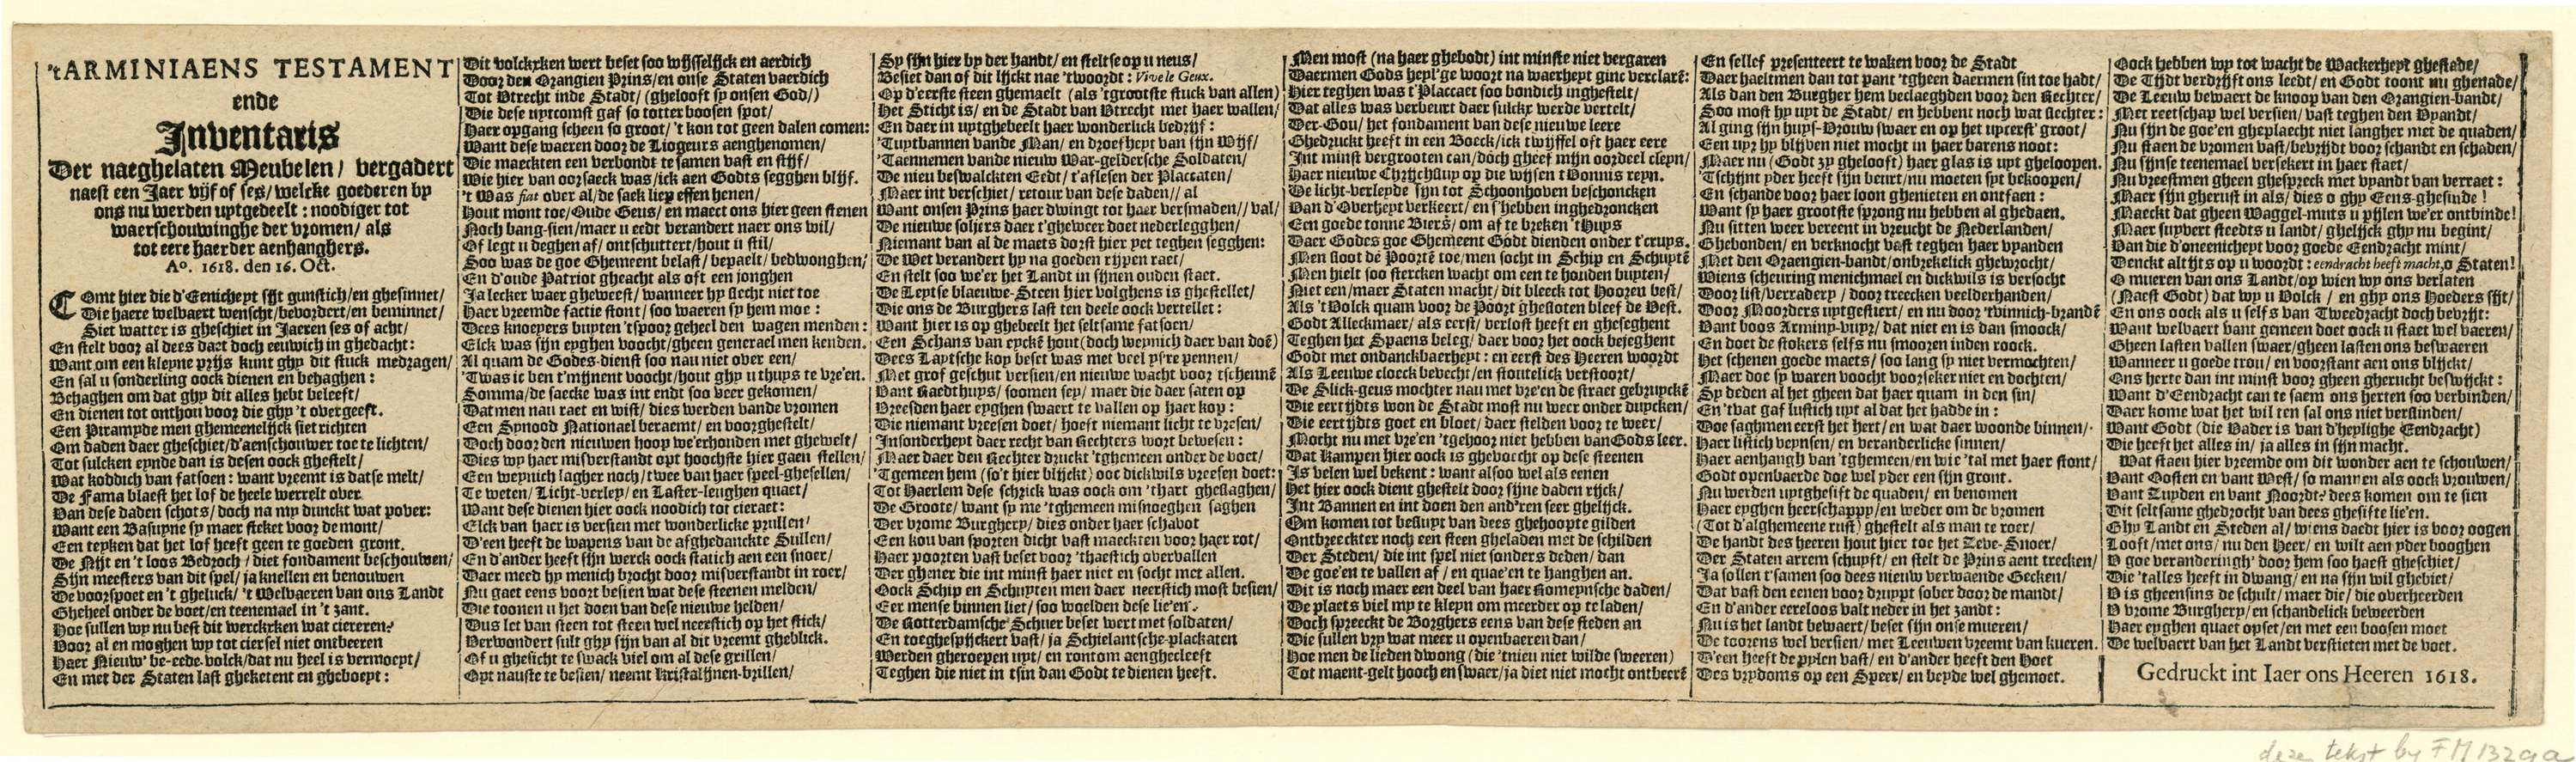 'tARMINIAENS TESTAMENT
ende
Inventaris
Der naeghelaten Meubelen / vergadert
naest een Jaer vijf of ses / welcke goederen by
ons nu werden uytgedeelt : noodiger tot
waerschouwinghe der vromen / als
tot eere haerder aenhanghers.
Ao. 1618. den 16. Oct.
COmt hier die d'Eenicheyt sijt gunstich / en ghesinnet /
Die haere welvaert wenscht / bevordert / en beminnet /
Siet watter is gheschiet in Jaeren ses of acht /
En stelt voor al dees daet doch eeuwich in ghedacht :
Want om een kleyne prijs kunt ghy dit stuck medragen /
En sal u sonderling oock dienen en behaghen :
Behaghen om dat ghy dit alles hebt beleeft /
En dienen tot onthou voor die ghy 't overgeeft.
Een Piramyde men ghemeenelijck siet richten
Om daden daer gheschiet / d'aenschouwer toe te lichten /
Tot sulcken eynde dan is desen oock ghestelt /
Wat koddich van fatsoen : want vreemt is datse melt /
De Fama blaest het lof de heele werrelt over
Van dese daden schots / doch na my dunckt wat pover :
Want een Basuyne sy maer steket voor de mont /
Een teyken dat het lof heeft geen te goeden gront.
De Nijt en 't loos Bedroch / diet fondament beschouwen /
Sijn meesters van dit spel / ja knellen en benouwen
De voorspoet en 't gheluck / 't Welvaeren van ons Landt
Gheheel onder de voet / en teenemael in 't zant.
Hoe sullen wy nu best dit werckxken wat cieren :
Voor al en moghen wy tot ciersel niet ontbeeren
Haer Nieuw' be-eede-volck / dat nu heel is vermoeyt /
En met der Staten last gheketent en gheboeyt :
Dit volckxken wert beset soo wijsselijck en aerdich
Door den Orangien Prins / en onse Staten vaerdich
Tot Utrecht inde Stadt / (ghelooft sy onsen God /)
Die dese uytcomst gaf so totter boosen spot /
Haer opgang scheen so groot / 't kon tot geen dalen comen :
Want dese waeren door de Liogeurs aenghenomen /
Die maeckten een verbondt te samen vast en stijf /
Wie hier van oorsaeck was / ick aen Godts segghen blijf.
't Was fiat over al / de saek liep effen henen /
Hout mont toe / Oude Geus / en maect ons hier geen stenen
Noch bang-sien / maer u eedt verandert naer ons wil /
Of legt u deghen af / ontschuttert / hout u stil /
Soo was de goe Ghemeent belast / bepaelt / bedwonghen /
En d'oude Patriot gheacht als oft een jonghen
Ja lecker waer gheweest / wanneer hy slecht niet toe
Haer vreemde factie stont / soo waeren sy hem moe :
Dees knoeyers buyten 'tspoor geheel den wagen menden :
Elck was sijn eyghen voocht / gheen generael men kenden.
Al quam de Godes-dienst soo nau niet over een /
'Twas ic ben t'mijnent voocht / hout ghy u thuys te vre'en.
Somma / de saecke was int endt soo veer gekomen /
Datmen nau raet en wist / dies werden vande vromen
Een Synood Nationael beraemt / en voorghestelt /
Doch door den nieuwen hoop we'erhouden met ghewelt /
Dies wy haer misverstandt opt hoochste hier gaen stellen /
Een weynich lagher noch / twee van haer speel-ghesellen /
Te weten / Licht-verley / en Laster-leughen quaet /
Want dese dienen hier oock noodich tot cieraet :
Elck van haer is versien met wonderlicke prullen /
D'een heeft de wapens van de afghedanckte Sullen /
En d'ander heeft sijn werck oock statich aen een snoer /
Daer meed hy menich brocht door misverstandt in roer /
Nu gaet eens voort besien wat dese steenen melden /
Die toonen u het doen van dese nieuwe helden /
Dus let van steen tot steen wel neerstich op het stick /
Verwondert sult ghy sijn van al dit vreemt gheblick.
Of u ghesicht te swack viel om al dese grillen /
Opt nauste te besien / neemt kristalijnen-brillen /
Sy sijn hier by der handt / en stelt se op u neus /
Besiet dan of dit lijckt nae 'twoordt : Vive le Geux.
Op d'eerste steen ghemaelt (als 'tgrootste stuck van allen)
Het Sticht is / en de Stadt van Utrecht met haer wallen /
En daer in uytghebeelt haer wonderlick bedrijf :
'Tuytbannen vande Man / en droefheyt van sijn Wijf /
'Taennemen vande nieuw War-geldersche Soldaten /
De nieu beswalckten Eedt / t'aflesen der Placcaten /
Maer int verschiet / retour van dese daden // al
Want onsen Prins haer dwingt tot haer versmaden // val /
De nieuwe soljers daer t'gheweer doet nederlegghen /
Niemant van al de maets dorst hier yet teghen segghen :
De Wet verandert hy na goeden rijpen raet /
En stelt soo we'er het Landt in sijnen ouden staet.
De Leytse blaeuwe-Steen hier volghens is ghestellet /
Die ons de Burghers last ten deele oock vertellet :
Want hier is op ghebeelt het seltsame fatsoen /
Een Schans van eyckē hout (doch weynich daer van doē)
Dees Laytsche kop beset was met veel ysre pennen /
Met grof geschut versien / en nieuwe wacht voor tschennē
Want Raedthuys / soomen sey / maer die daer saten op
Vreesden haer eyghen swaert te vallen op haer kop :
Die niemant vreesen doet / hoeft niemant licht te vresen /
Insonderheyt daer recht van Rechters wort bewesen :
Maer daer den Rechter druckt 'tghemeen onder de voet /
'Tgemeen hem (so't hier blijckt) ooc dickwils vreesen doet :
Tot Haerlem dese schrick was oock om 'thart gheslaghen /
De Groote / want sy me 'tghemeen misnoeghen saghen
Der vrome Burghery / dies onder haer schavot
Een kou van sporten dicht vast maeckten voor haer rot /
Haer poorten vast beset voor 'thaestich overvallen
Der ghener die int minst haer niet en socht met allen.
Oock Schip en Schuyten men daer neerstich most besien /
Eer mense binnen liet / soo woelden dese lie'en.
De Rotterdamsche Schuer beset wert met soldaten /
En toeghespijckert vast / ja Schielantsche-plackaten
Werden gheroepen uyt / en rontom aenghecleeft
Teghen die niet in tsin dan Godt te dienen heeft.
Men most (na haer ghebodt) int minste niet vergaren
Daermen Gods heyl'ge woort na waerheyt ginc verclarē :
Hier teghen was t'Placcaet soo bondich inghestelt /
Dat alles was verbeurt daer sulckx werde vertelt /
Der-Gou / het fondament van dese nieuwe leere
Ghedruckt heeft in een Boeck / ick twijffel oft haer eere
Int minst vergrooten can / doch gheef mijn oordeel cleyn /
Haer nieuwe Chrijchsluy op die wijsen t'Vonnis reyn.
De licht-verleyde sijn tot Schoonhoven beschoncken
Van d'Overheyt verkeert / en s'hebben inghedroncken
Een goede tonne Biers / om af te breken 'thuys
Daer Godes goe Ghemeent Godt dienden onder t'cruys.
Men sloot de Poortē toe / men socht in Schip en Schuytē
Men hielt soo stercken wacht om een te houden buyten /
Niet een / maer Staten macht / dit bleeck tot Hooren best /
Als 't Volck quam voor de Poort ghesloten bleef de Vest.
Godt Alleckmaer / als eerst / verlost heeft en gheseghent
Teghen het Spaens beleg / daer voor het oock bejeghent
Godt met ondanckbaerheyt : en eerst des Heeren woordt
Als Leeuwe cloeck bevecht / en stoutelick verstoort /
De Slick-geus mochter nau met vre'en de straet gebruyckē
Die eertijdts won de Stadt most nu weer onder duycken /
Die eertijdts goet en bloet / daer stelden voor te weer /
Mocht nu met vre'en 'tgehoor niet hebben van Gods leer.
Dat Kampen hier oock is ghevoecht op dese steenen
Is velen wel bekent : want alsoo wel als eenen
Het hier oock dient ghestelt door sijne daden rijck /
Int Bannen en int doen den and'ren seer ghelijck.
Om komen tot besluyt van dees ghehoopte gilden
Ontbreeckter noch een steen gheladen met de schilden
Der Steden / die int spel niet sonders deden / dan
De goe'en te vallen af / en quae'en te hanghen an.
Dit is noch maer een deel van haer Romeynsche daden /
De plaets viel my te kleyn om meerder op te laden /
Doch spreeckt de Borghers eens van dese steden an
Die sullen vry wat meer u openbaeren dan /
Hoe men de lieden dwong (die 'tnieu niet wilde sweeren)
Tot maent-gelt hooch en swaer / ja diet niet mocht ontbeerē
En sellef presenteert te waken voor de Stadt
Daer haeltmen dan tot pant 'tgheen daermen sin toe hadt /
Als dan den Burgher hem beclaeghden voor den Rechter /
Soo most hy uyt de Stadt / en hebbent noch wat slechter :
Al ging sijn huys-Vrouw swaer en op het uyterst' groot /
Een uyr hy blijven niet mocht in haer barens noot :
Maer nu (Godt zy ghelooft) haer glas is uyt gheloopen.
'Tschijnt yder heeft sijn beurt / nu moeten syt bekoopen /
En schande voor haer loon ghenieten en ontfaen :
Want sy haer grootste sprong nu hebben al ghedaen.
Nu sitten weer vereent in vreucht de Nederlanden /
Ghebonden / en verknocht vast teghen haer vyanden
Met den Oraengien-bandt / onbrekelick ghewrocht /
Wiens scheuring menichmael en dickwils is versocht
Door list / verradery / door treecken veelderhanden /
Door Moorders uytgestiert / en nu door 'tvinnich-brandē
Vant boos Arminy-vuyr / dat niet en is dan smoock /
En doet de stokers selfs nu smooren inden roock.
Het schenen goede maets / soo lang sy niet vermochten /
Maer doe sy waren voocht voorseker niet en dochten /
Sy deden al het gheen dat haer quam in den sin /
En 'twat gaf lustich uyt al dat het hadde in :
Doe saghmen eerst het hert / en wat daer woonde binnen /
Haer listich veynsen / en veranderlicke sinnen /
Haer aenhangh van 'tghemeen / en wie 'tal met haer stont /
Godt openbaerde doe wel yder een sijn gront.
Nu werden uytghesift de quaden / en benomen
Haer eyghen heerschappy / en weder om de vromen
(Tot d'alghemeene rust) ghestelt als man te roer /
De handt des heeren hout hier toe het Zeve-Snoer /
Der Staten arrem schupft / en stelt de Prins aent trecken /
Ja sollen t'samen soo dees nieuw verwaende Gecken /
Dat vast den eenen voor druypt sober door de mandt /
En d'ander eereloos valt neder in het zandt :
Nu is het landt bewaert / beset sijn onse mueren /
De toorens wel versien / met Leeuwen vreemt van kueren.
D'een heeft de pylen vast / en d'ander heeft den Hoet
Des vrydoms op een Speer / en beyde wel ghemoet.
Oock hebben wy tot wacht de Wackerheyt ghestade /
De Tijdt verdrijft ons leedt / en Godt toont nu ghenade /
De Leeuw bewaert de knoop van den Orangien-bandt /
Met reetschap wel versien / vast teghen den Vyandt /
Nu sijn de goe'en gheplaecht niet langher met de quaden /
Nu staen de vromen vast / bevrijdt voor schandt en schaden /
Nu sijnse teenemael versekert in haer staet /
Nu vreestmen gheen ghespreck met vyandt van verraet :
Maer sijn gherust in als / dies o ghy Eens-ghesinde !
Maeckt dat gheen Waggel-muts u pijlen we'er ontbinde !
Maer suyvert steedts u landt / ghelijck ghy nu begint /
Van die d'oneenicheyt voor goede Eendracht mint /
Denckt altijts op u woordt : eendracht heeft macht, o Staten !
O mueren van ons Landt / op wien wy ons verlaten
(Naest Godt) dat wy u Volck / en ghy ons Hoeders sijt /
En ons oock als u selfs van Tweedracht doch bevrijt :
Want welvaert vant gemeen doet oock u staet wel vaeren /
Gheen lasten vallen swaer / gheen lasten ons beswaeren
Wanneer u goede trou / en voorstant aen ons blijckt /
Ons herte dan int minst voor gheen gherucht beswijckt :
Want d'Eendracht can te saem ons herten soo verbinden /
Daer kome wat het wil ten sal ons niet verslinden /
Want Godt (die Vader is van d'heylighe Eendracht)
Die heeft het alles in / ja alles in sijn macht.
Wat staen hier vreemde om dit wonder aen te schouwen /
Vant Oosten en vant West / so mannen als oock vrouwen /
Vant Zuyden en vant Noordt? dees komen om te sien
Dit seltsame ghedrocht van dees ghesifte lie'en.
Ghy Landt en Steden al / wiens daedt hier is voor oogen
Looft / met ons / nu den Heer / en wilt aen yder booghen
V goe veranderingh' door hem soo haest gheschiet /
Die 'talles heeft in dwang / en na sijn wil ghebiet /
V is gheensins de schult / maer die / die overheerden
V vrome Burghery / en schandelick beweerden
Haer eyghen quaet opset / en met een boosen moet
De welvaert van het Landt verstieten met de voet.
Gedruckt int Iaer ons Heeren 1618.
deze tekst by FM 1329a